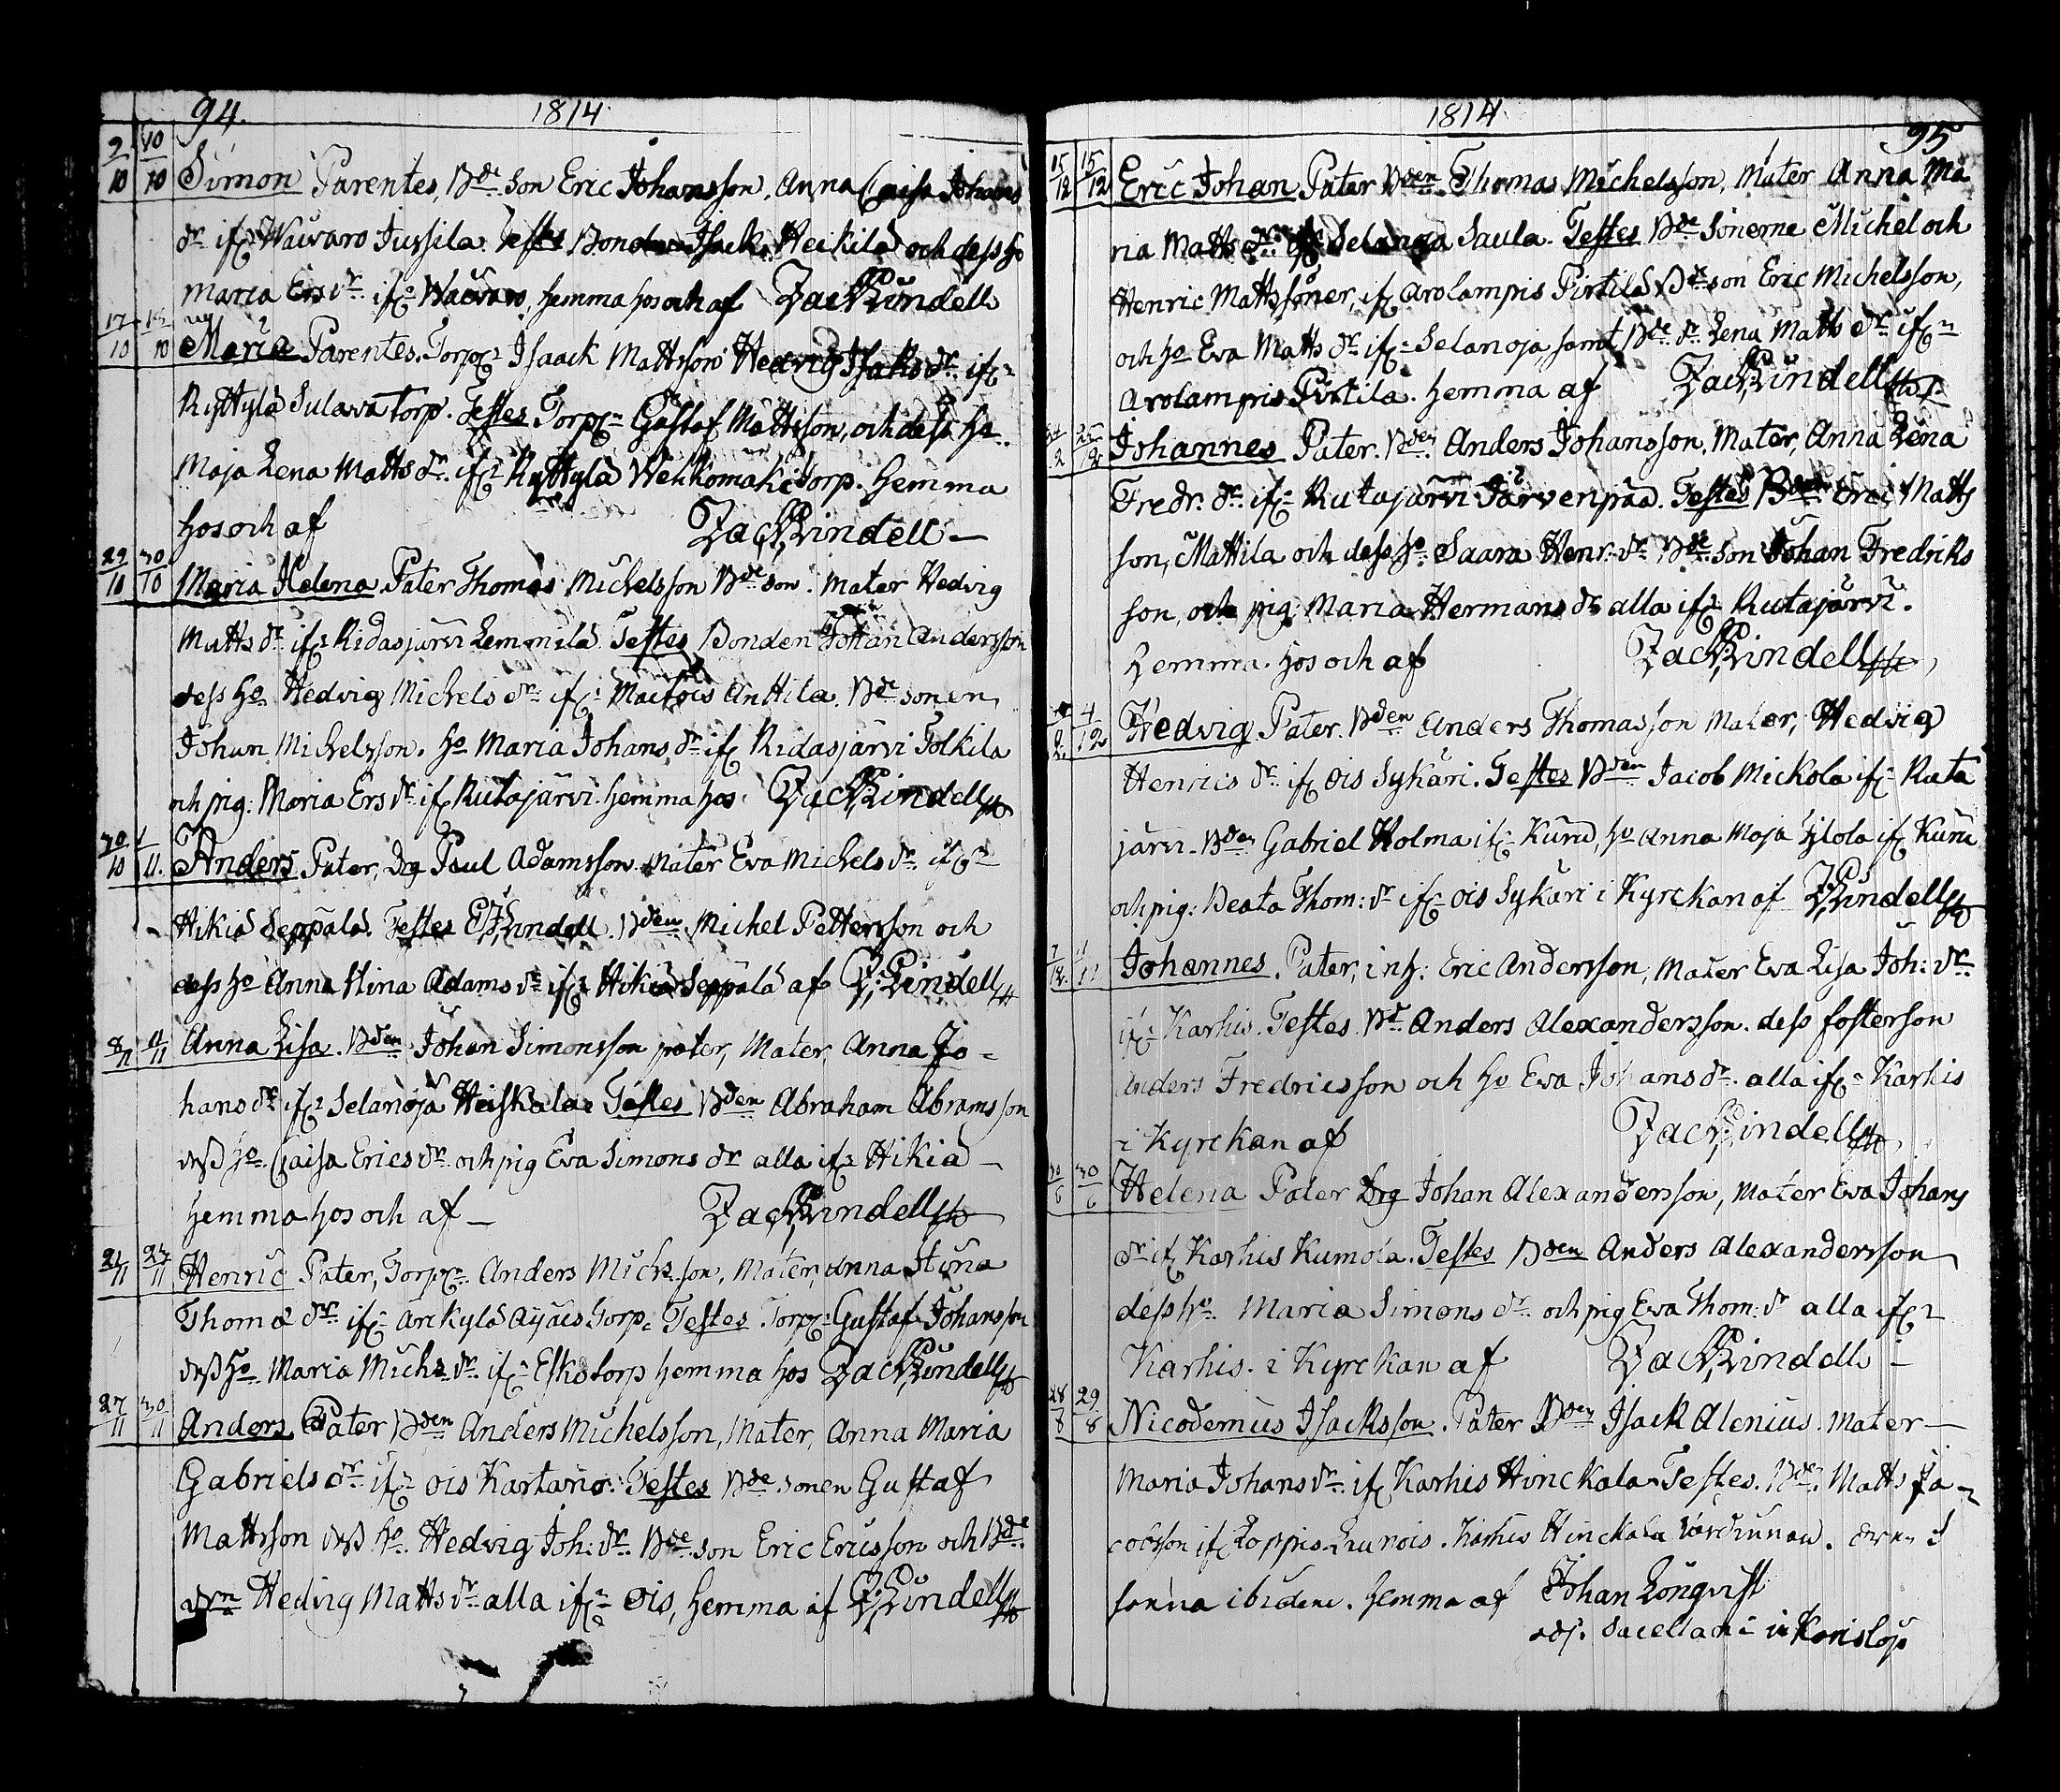 94. 1814
9/10 10/10 Simon Parentes, Bde son Eric Johansson, Anna Caisa Johans
dr ifr Waivaro Jussila. Testes Bonden Isack Heikilä och dess ho
Maria Ers dr ifr Waivaro, hemma hos och af Zach Lindell
17/10 18/10 Maria Parentes. Torpr Isaack Mattsson Hedvig Isaks dr ifr
Ryttylä Sulava torp. Testes Torpr Gustaf Mattsson, och dess ho.
Maja Lena Matts dr. ifr Ryttylä Wehkomäki torp. hemma
hos och af Zach Lindell
29/10 30/10 Maria Helena. Pater Thomas Michelsson Bde son. Mater Hedvig
Matts dr ifr Ridasjärvi Lemmilä. Testes Bonden Johan Andersson
dess ho Hedvig Michels dr ifr Maitois Anttila. Bde sonen
Johan Michelsson. ho Maria Johans dr ifr Ridasjärvi Tolkila
och pig: Maria Ers dr ifr Rutajärvi. hemma hos Zach Lindell
30/10 1/11. Anders Pater, Drg Paul Adamsson. Mater Eva Michels dr ifr
Hikiä Seppälä. Testes Lindell. Bden Michel Pettersson och
dess ho Anna Stina Adams dr ifr Hikiä Seppälä af Z: Lindell
8/11 11/11 Anna Lisa. Bden Johan Simonsson pater, Mater, Anna Jo-
hans dr ifr Selanoja Heiskala Testes Bden Abraham Abramsson
dess ho Caisa Erics dr. och pig Eva Simons dr alla ifr Hikiä
hemma hos och af Zach Lindell
21/11 27/11 Henric Pater, Torpr Anders Michs son, Mater, Anna Stina
Thomæ dr ifr Arkylä Torp. Testes Torpr Gustaf Johansson
dess ho. Maria Michs dr. ifr Esko torp hemma hos Zach Lindell
27/11 30/11 Anders. Pater Bden Anders Michelsson, Mater, Anna Maria
Gabriels dr ifr Ois Kartano. Testes Bde sonen Gustaf
Mattsson dess ho. Hedvig Joh: dr. Bde son Eric Ericsson och Bde
drn Hedvig Matts dr alla ifr Ois, hemma af Z: Lindell
1814 95
15/12 15/12 Eric Johan Pater Bden Thomas Michelsson, Mater Anna Ma
ria Matts dr ifr Selanoja Saula. Testes Bde Sönerne Michel och
Henric Mattssöner, ifr Arolampis Pirtilä Bde son Eric Michelsson,
och ho Eva Matts dr ifr Selanoja, samt Bde dr Lena Matts dr ifr
Arolampis Pirtilä. hemma af Zach Lindell
Johannes Pater. Bden Anders Johansson. Mater, Anna Lena
Fredr. dr. ifr Rutajärvi Järvenpää. Testes Bden Eric Matts
son, Mattila och dess ho. Saara Henr: dr Bde son Johan Fredriks
son, och pig: Maria Hermans dr alla ifr Rutajärvi.
hemma hos och af Zach Lindell
4/12 Hedvig Pater. Bden Anders Thomasson Mater, Hedvig
Henrics dr ifr Ois Sykäri. Testes Bden Jacob Mickola ifr Ruta
järvi. Bden Gabriel Holma ifr Kuru, ho Anna Maja Ylola ifr Kuru
och pig: Beata Thom: dr ifr Ois Sykäri i Kyrckan af Z Lindell
Johannes. Pater, inh: Eric Andersson, Mater Eva Lisa Joh: dr
ifr Karhis. Testes. Bd. Anders Alexandersson. dess fosterson
Anders Fredricsson och ho Eva Johans dr. alla ifr Karhis
i Kyrckan af Zach Lindell
30/6 30/6 Helena Pater Drg Johan Alexandersson, Mater Eva Johans
dr ifr Karhis Kumola. Testes Bden Anders Alexandersson
dess ho. Maria Simons dr och pig Eva Thom: dr alla ifr
Karhis. i Kyrckan af Zach Lindell
28/8 29/8 Nicodemus Isacksson. Pater Bden Isack Alenius. Mater
Maria Johans dr. ifr Karhis Hinckala. Testes. Bden. Matts Ja-
cobsson ifr Loppis. Karhis Hinckala
ibidem. hemma af Johan Lönqvist
adj. Sacellani i Karislojo